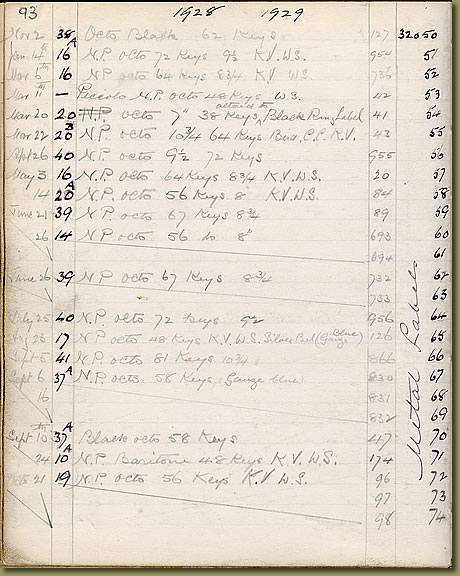 93 1928 1929
Nov 2 38 Octo Black 62 Keys 127 32050
Jan 14th 16A N.P. octo 72 Keys 9½ K.V.W.S. 954 51
Mar 6th 16 N.P. octo 64 Keys 8¾ K.V. W.S. 736 52
Mar 11th — Piccolo N.P. octo 48 Keys W.S. 112 53
Mar 20 20 N.P. octo 7" 38 Keys, Black Rim, Label 41 54
Mar 22 20B N.P. octo 10¾ 64 Keys K.V. 43 55
Apl 26 40 N.P. octo 9½ 72 Keys 955 56
May 3 16 N.P. octo 64 Keys 8¾ K.V.W.S. 20 57
14 20A N.P. octo 56 Keys 8" K.V.W.S. 84 58
June 21 39 N.P. octo 67 Keys 8¾ 89 59
26 14 N.P. octo 56 do 8" 693 60
694 61
June 26 39 N.P. octo 67 Keys 8¾ 732 62
733 63
July 25 40 N.P. octo 72 Keys 9½ 956 64
23 17 N.P. octo 48 Keys K.V.W.S. Silver Bel (Gauge Blue) 126 65
Sept 5 41 N.P. octo 81 Keys 10¾ 866 66
Sept 6 37A N.P. octo 58 Keys (Gauge blue) 830 67
16 831 68
832 69
Sept 10th 37A Black octo 58 Keys 47 70
24 10A N.P. Baritone 48 Keys K.V.W.S. 174 71
21 19 N.P. octo 56 Keys K.V W.S. 96 72
97 73
98 74
Metal Labels